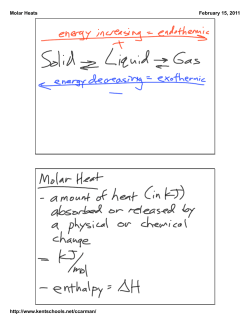 Molar Heats February 15, 2011
energy increasing = endothermic
+
Solid ⇌ Liquid ⇌ Gas
energy decreasing = exothermic
-
Molar Heat
- amount of heat (in kJ)
absorbed or released by
a physical or chemical
change
= kJ/mol
- enthalpy = ΔH
http://www.kentschools.net/ccarman/